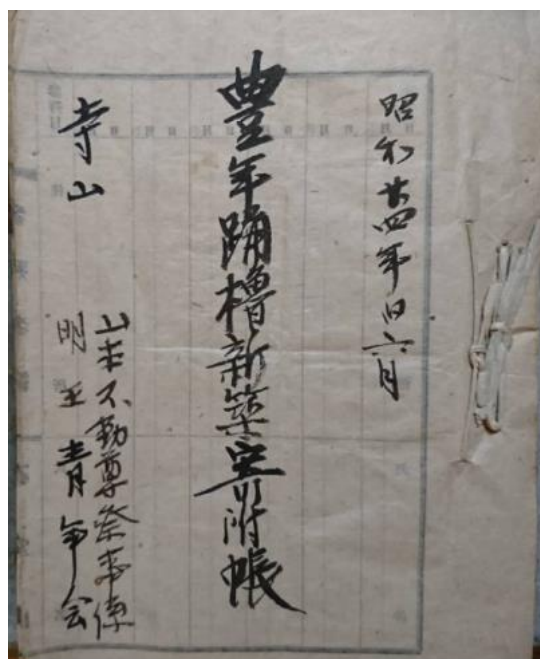 昭和廿四年旧六月
豊年踊櫓新築寄附帳
寺山
山本不動尊祭事係
明王青年会